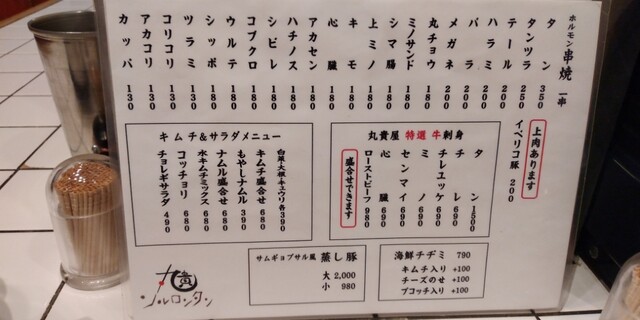 ホルモン串焼 一串
タン 350
タンツラ 250
テール 200
ハラミ 200
バラ 200
メガネ 200
丸チョウ 180
ミノサンド 180
シマ腸 180
上ミノ 180
キモ 180
心臓 180
アカセン 180
ハチノス 180
シビレ 180
コブクロ 180
ウルテ 180
シッポ 180
ツラミ 130
コリコリ 130
アカコリ 130
カッパ 130
上肉あります
イベリコ豚 200
丸貴屋 特選 牛刺身
タン 1500
チレ 690
チレユッケ 690
ミノ 690
センマイ 690
心臓 690
ローストビーフ 980
盛合せできます
キムチ&サラダメニュー
白菜・大根・キュウリ 各390
キムチ盛合せ 680
もやしナムル 390
ナムル盛合せ 680
水キムチミックス 680
コッチョリ 680
チョレギサラダ 490
海鮮チヂミ 790
キムチ入り +100
チーズのせ +100
ブコッチ入り +100
サムギョプサル風 蒸し豚
大 2,000
小 980
丸貴
ソルロンタン